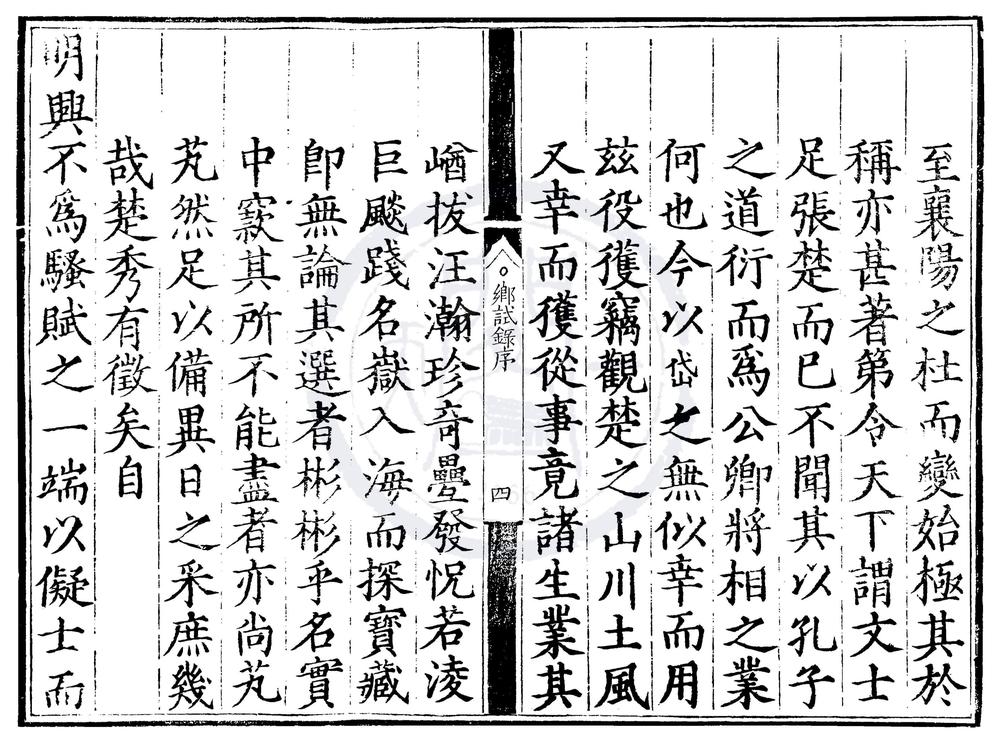 至襄陽之杜而變始極其於
稱亦甚著第令天下謂文士
足張楚而已不聞其以孔子
之道衍而爲公卿將相之業
何也今以岱之無似幸而用
茲役獲竊觀楚之山川土風
又幸而獲從事竟諸生業其
鄉試錄序
四
崷拔汪瀚珍奇疊發怳若淩
巨颷踐名嶽入海而探寶藏
卽無論其選者彬彬乎名實
中窾其所不能盡者亦尚芃
芃然足以備異日之采庶幾
哉楚秀有徵矣自
明興不爲騷賦之一端以儗士而